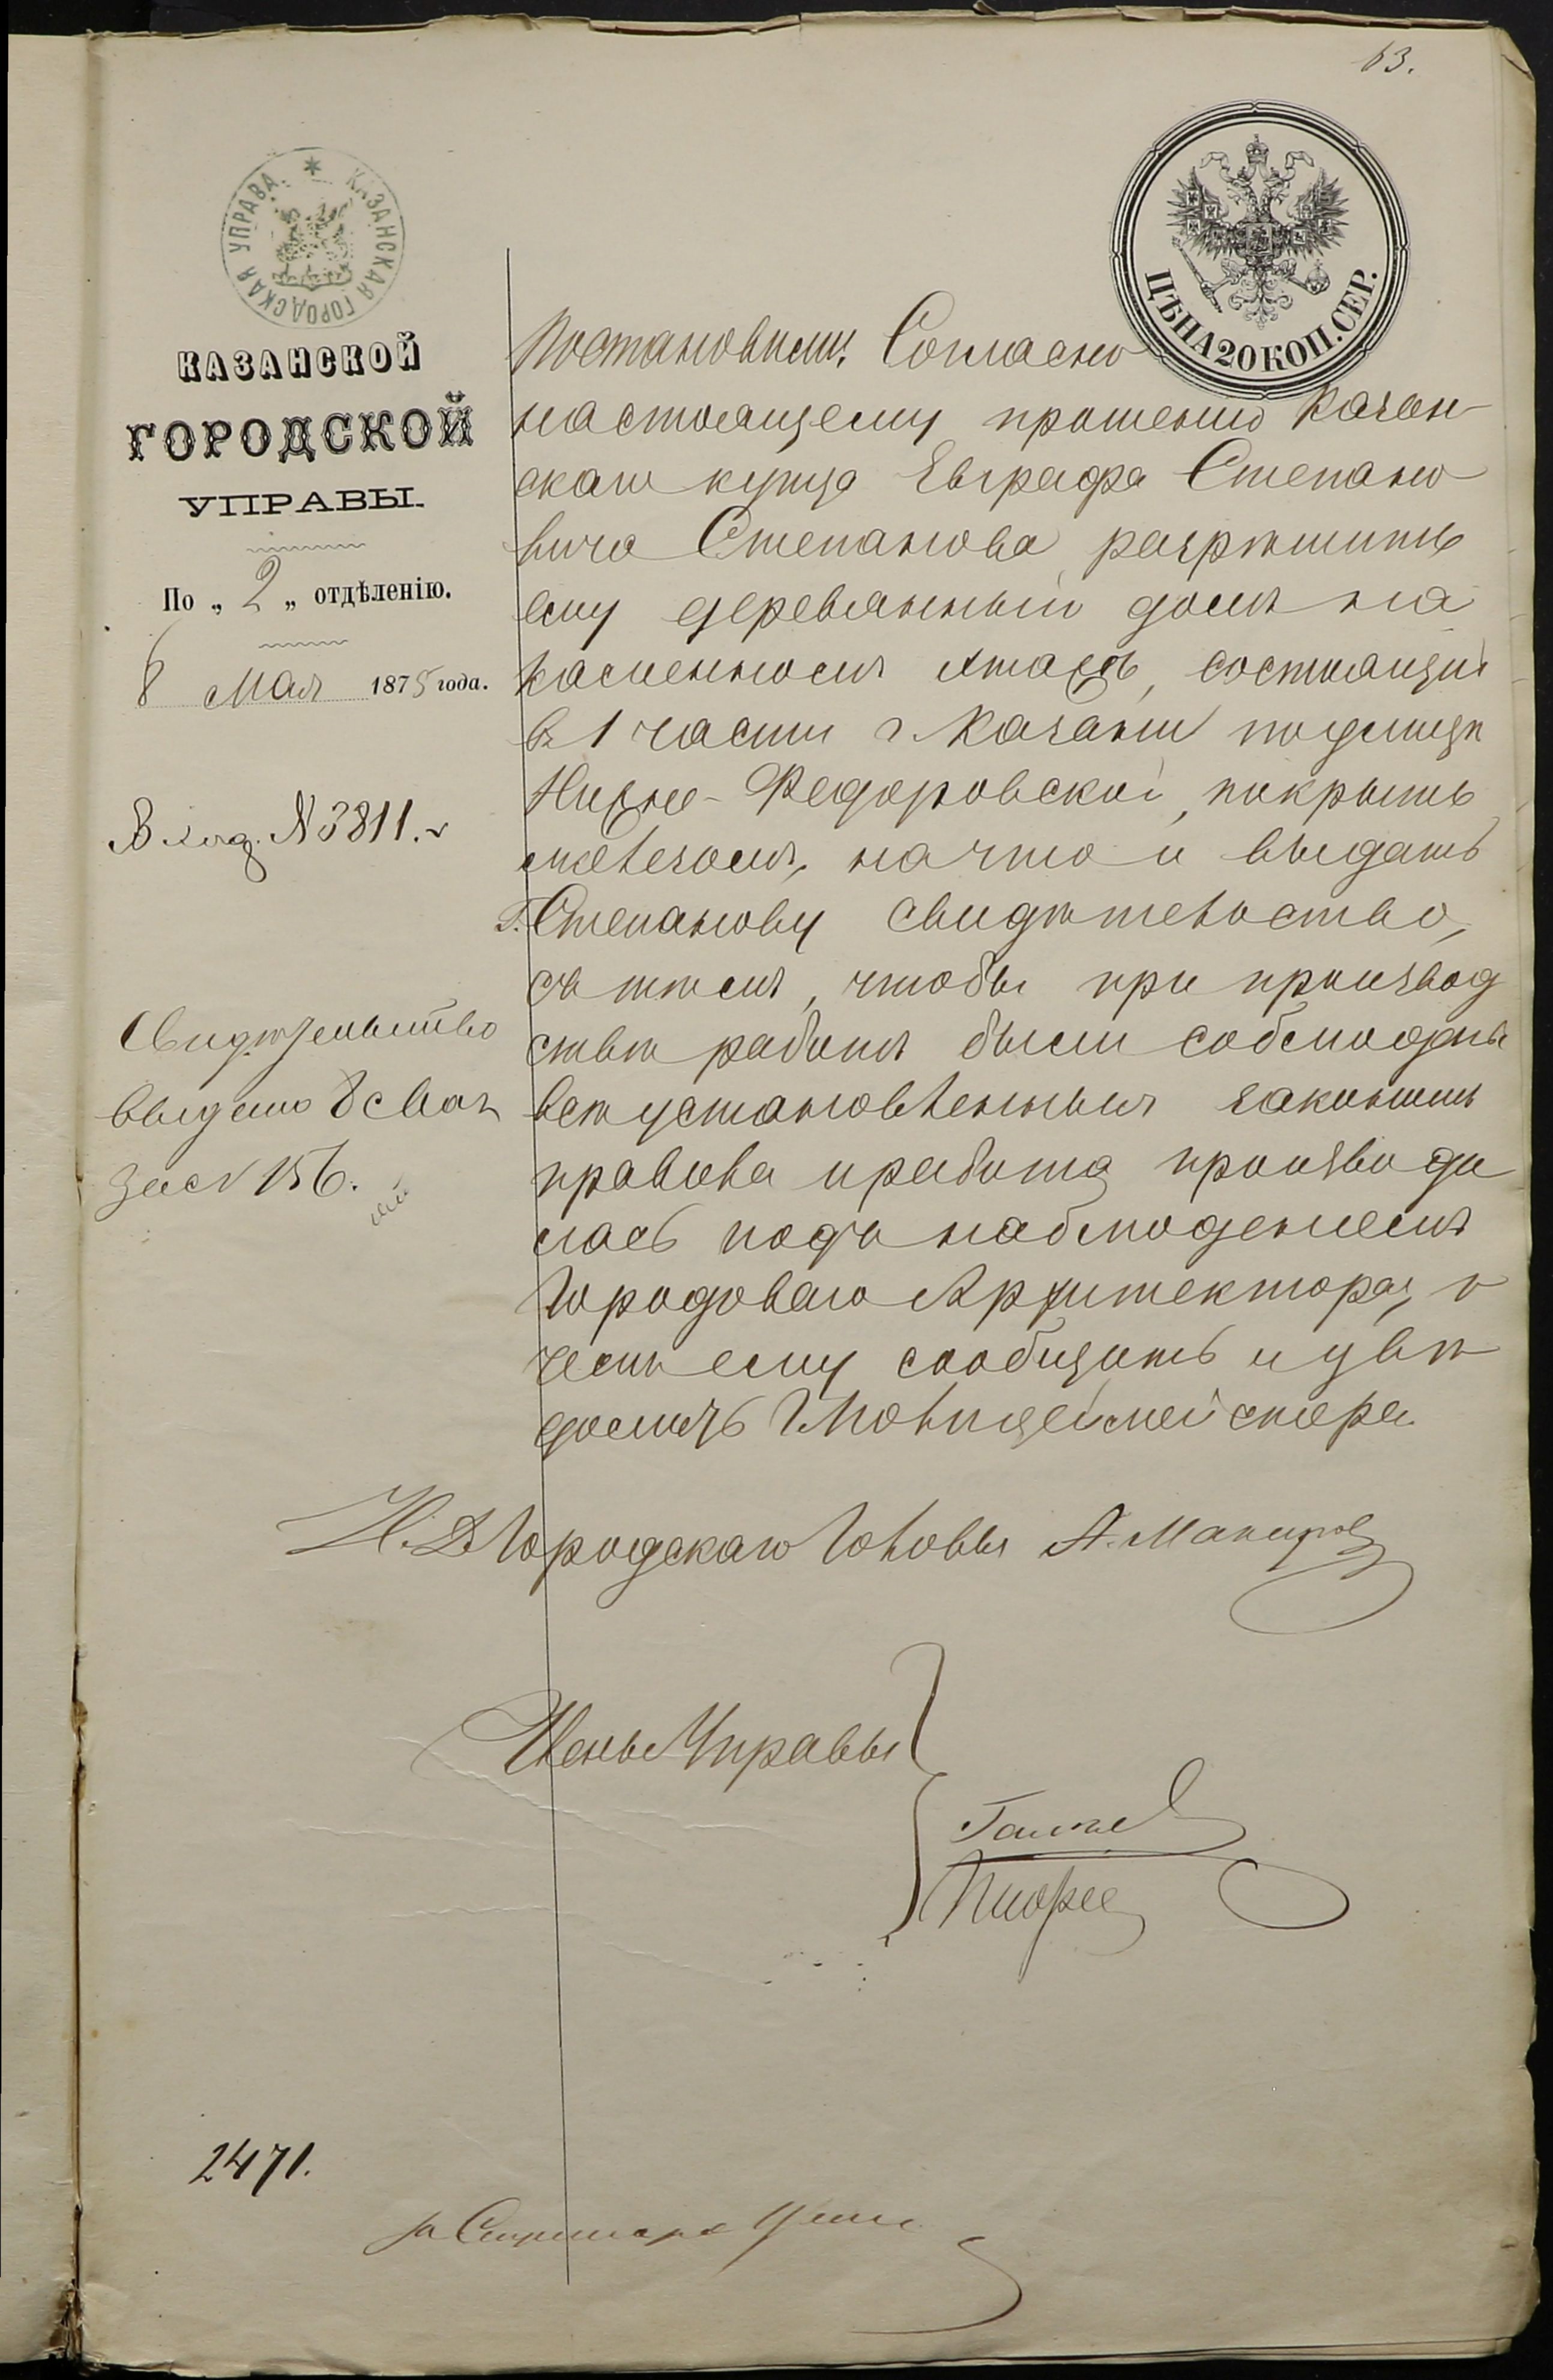 63.
КАЗАНСКАЯ ГОРОДСКАЯ УПРАВА
ЦѢНА 20 КОП. СЕР.
КАЗАНСКОЙ
ГОРОДСКОЙ
УПРАВЫ.
По „ 2 „ отдѣленію.
8 Мая 1875 года.
Вход. N 3811.
Свидѣтельство
выдано 8 Мая
за N 156.
Постановили: Согласно
настоящему прошенію Казан-
скаго купца Евграфа Степано
вича Степанова разрѣшить
ему деревянный домъ на
каменномъ этажѣ, состоящій
въ 1 части г. Казани по улицѣ
Нижне-Федоровской, покрыть
желѣзомъ, на что и выдать
Г. Степанову свидѣтельство,
съ тѣмъ, чтобы при производ
ствѣ работъ были соблюдены
всѣ установленныя закономъ
правила и работа производи
лась подъ наблюденіемъ
Городоваго Архитектора, о
чемъ ему сообщить и увѣ
домить Г Полицеймейстера
И. Д. Городскаго Головы А.
Члены Управы
за Секретаря
2471.